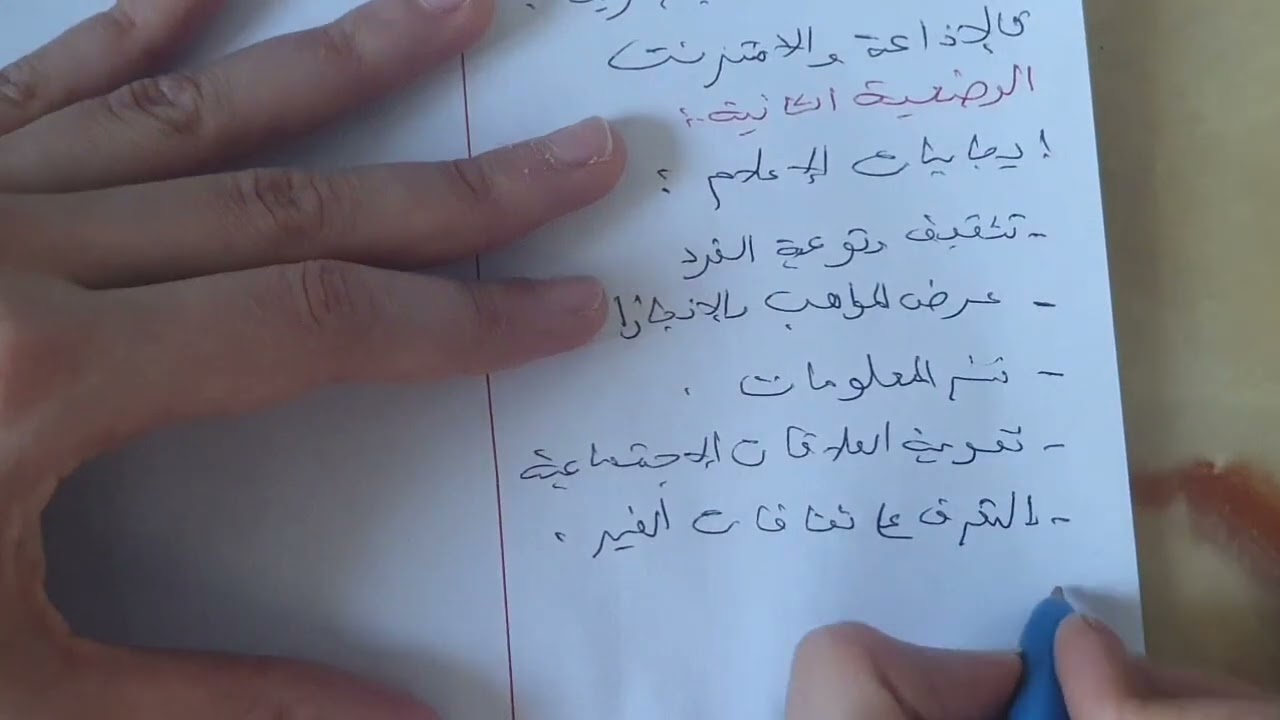 كالإذاعة والانترنت
الوضعية الثانية :
إيجابيات الإعلام :
- تثقيف وتوعية الفرد
- عرض المواهب والإنجازا
- نشر المعلومات .
- تقوية العلاقات الإجتماعية
- التعرف على ثقافات الغير .